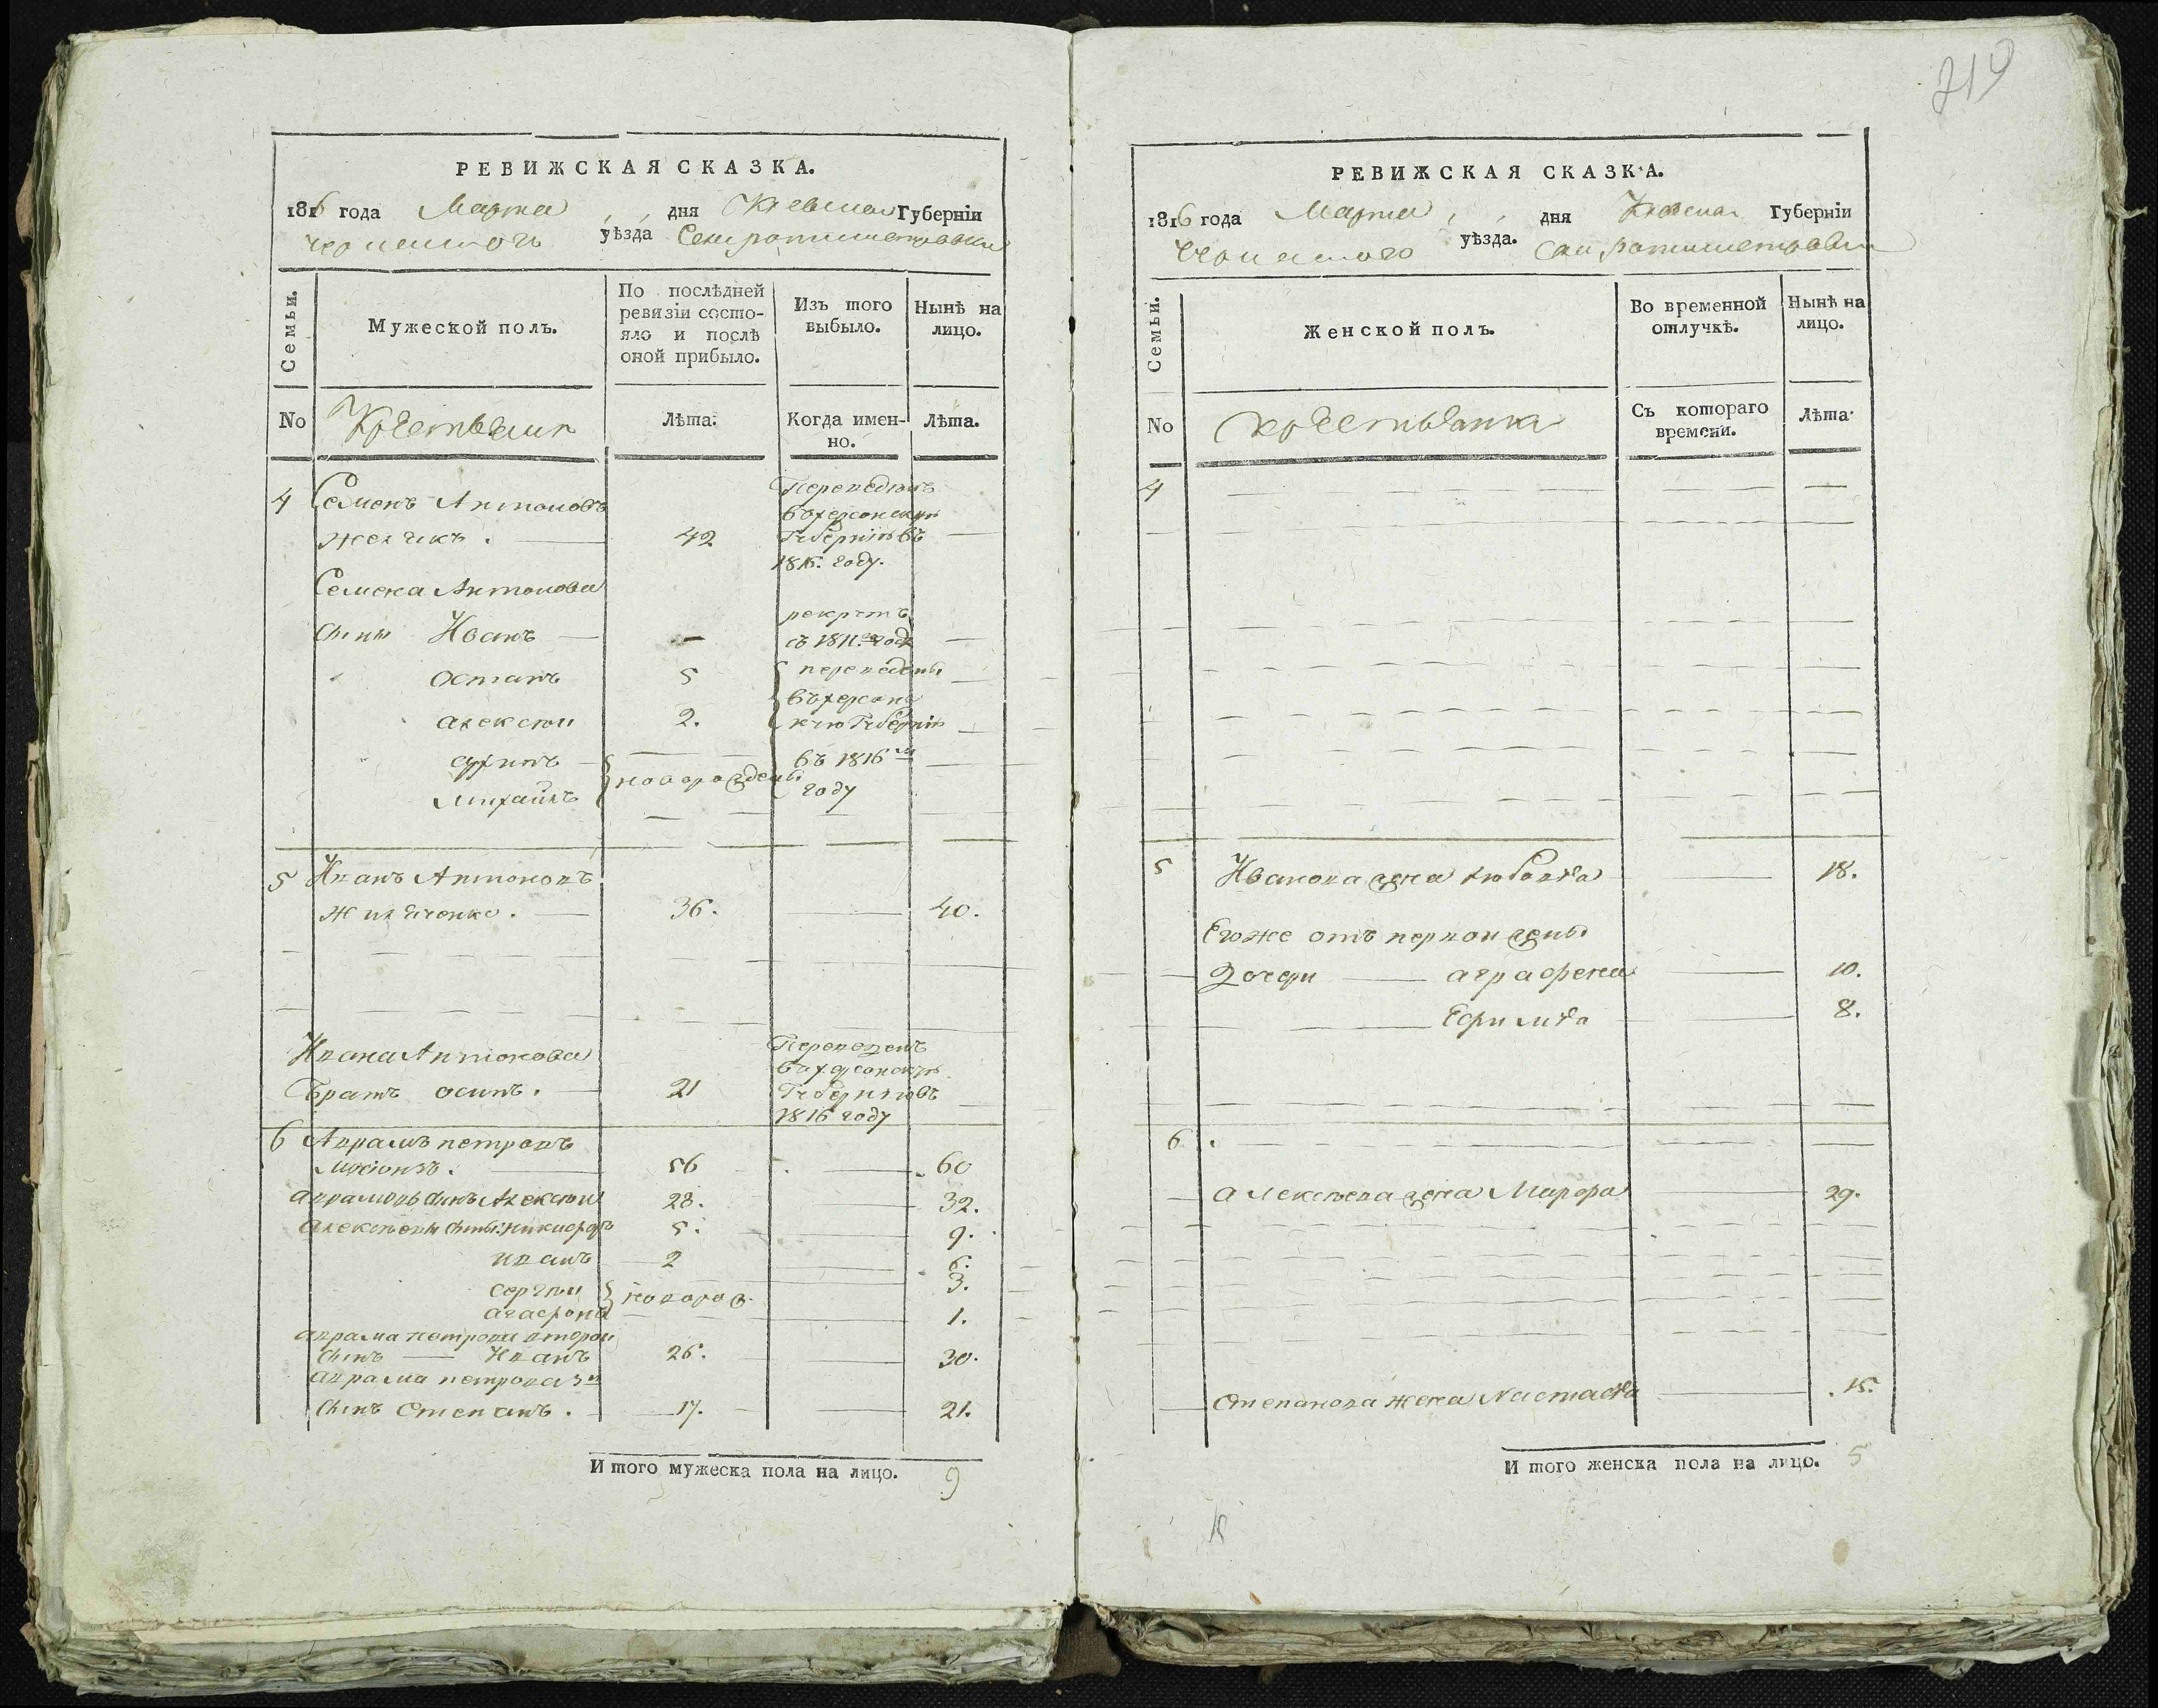 219
РЕВИЖСКАЯ СКАЗКА.
1816 года Марта дня Киевской Губерніи
уѣзда
Семьи.
Мужеской полъ.
По послѣдней ревизіи состояло и послѣ оной прибыло.
Изъ того выбыло.
Нынѣ на лицо.
No
Крестьяне
Лѣта.
Когда именно.
Лѣта.
4 Семенъ Антоновъ
42
Переведенъ
въ херсонскую
Губернію въ
1816. году.
Семена Антонова
сыны Иванъ —
рекрутъ
съ 1811. году
Остапъ 5 переведены
Алексѣй 2. въ херсонс
кую Губернію
въ 1816 м
Михайлъ новорождены году
5 Иванъ Антоновъ
36. — 40.
Ивана Антонова
Братъ осипъ. — 21
Переведенъ
въ херсонскую
Губернію въ
1816 году
6 Аврамъ петровъ
56 — 60
Аврамовъ сынъ Алексѣй 28. — 32.
Алексѣевы сыны: никифоръ 5. — 9.
иванъ 2 — 6.
сергѣй новорож. 3.
агафонъ — 1.
Аврама петрова второй
сынъ — Иванъ 26. — 30.
Аврама петрова 3й
сынъ Степанъ. — 17. — 21.
И того мужеска пола на лицо. 9
РЕВИЖСКАЯ СКАЗКА.
1816 года Марта дня Киевской Губерніи
уѣзда.
Семьи.
Женской полъ.
Во временной отлучкѣ.
Нынѣ на лицо.
No
крестьянки
Съ котораго времени.
Лѣта.
4
5 Иванова жена — 18.
Егоже отъ первой жены
дочери — аграфена — 10.
— Ефимія — 8.
6
Алексѣева жена Марфа — 29.
Степанова жена Настасія — 15.
И того женска пола на лицо. 5